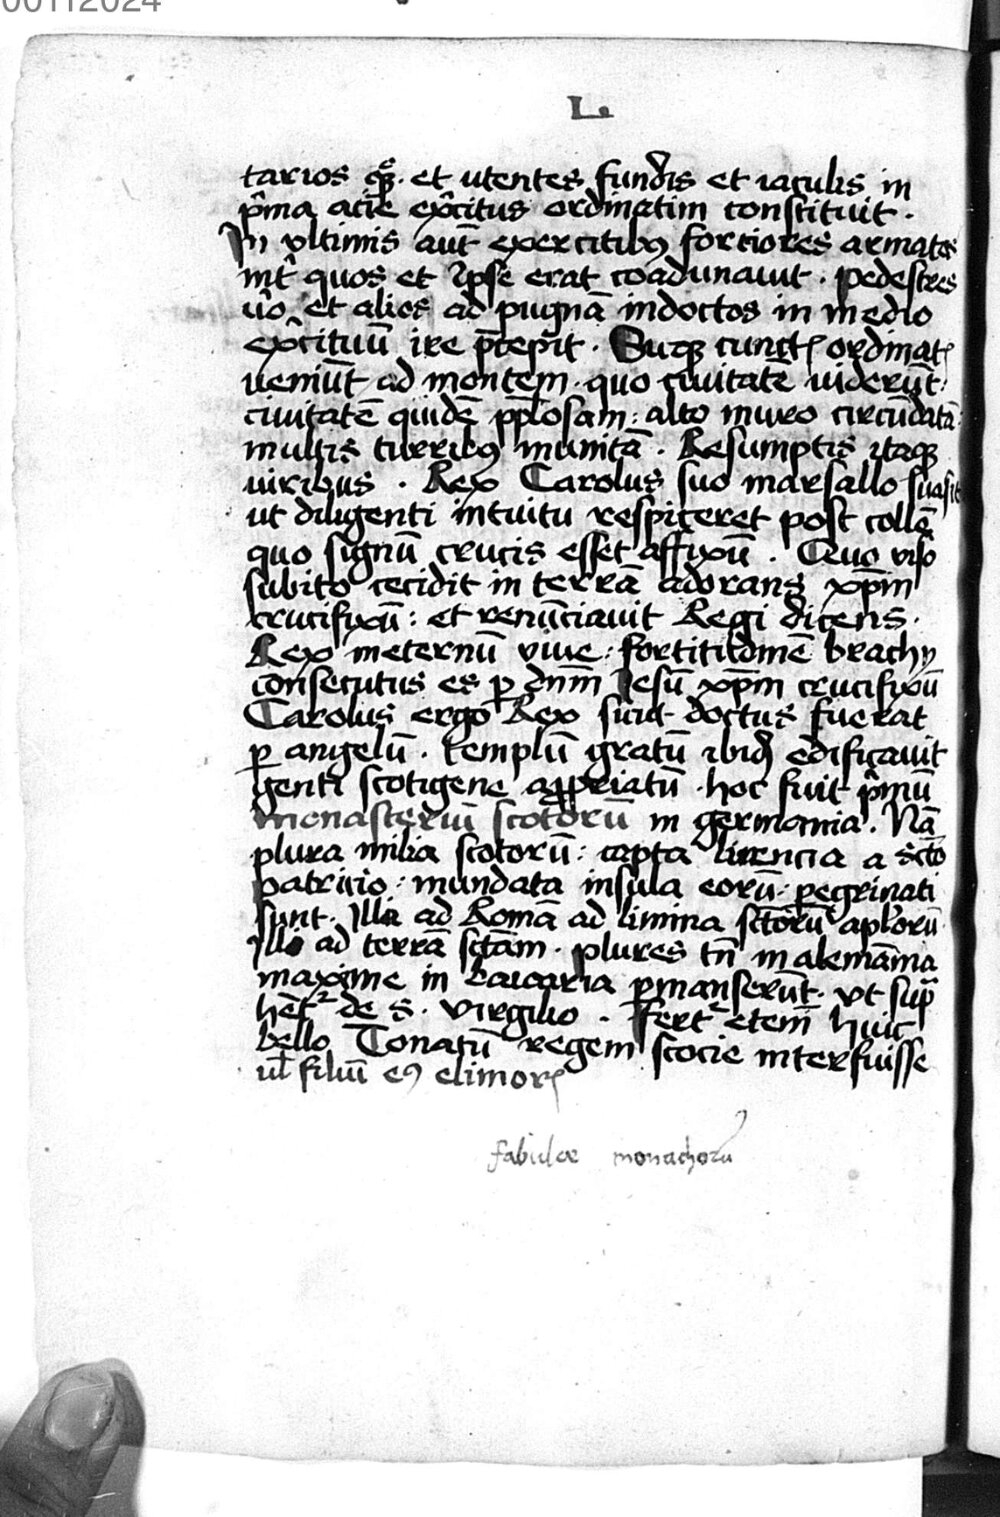 00112024
L.
tarios qꝫ. et utentes fundis et iaculis in
p̄ma acie exc̄itus ordinatim constituit.
In vltimis aut̄ exercitibꝯ forciores armatos
int̄ quos et ipse erat coadunauit. pedestres
u̇o et alios ad pugnā indoctos in medio
exc̄ituū ire p̄cepit. Sicqꝫ cunctꝭ ordinatꝭ
ueniūt ad montem. quo ciuitatē viderūt.
ciuitatē quidē pp̄losam: alto muro circūdatā
multis turribꝯ munitā. Resumptis itaqꝫ
uiribus. Rex Carolus suo marsallo suasit
ut diligenti intuitu respiceret post collē
quo signū crucis esset affixū. Quo viso
subito cecidit in terrā adorans xp̄m
crucifixū: et renūciauit Regi dicens.
Rex ineternū viue: fortitudinē brachij
consecutus es ꝑ dn̄m Iesū xp̄m crucifixū
Carolus ergo Rex sicut doctus fuerat
ꝑ angelū. templū gratū ibidꝫ edificauit
genti scotigene app̄riatū. hoc fuit p̄mū
monasteriū scotorū in germania. Nā
plura milia scotorū: capta licencia a sc̄to
patricio: mundata insula eorū: ꝑegrinati
sunt. Illi ad Romā ad limina sc̄torū apl̄orū
Illi ad terrā sc̄tam. plures tn̄ in alemānia
maxime in bauaria ꝑmanserūt. vt sup̄
hēt᷑ de S. Virgilio. Fert᷑ etem̄ huic
bello Donatū regem scocie interfuisse
ul̄ filiū eꝯ elimorꝭ
fabulae monachorū